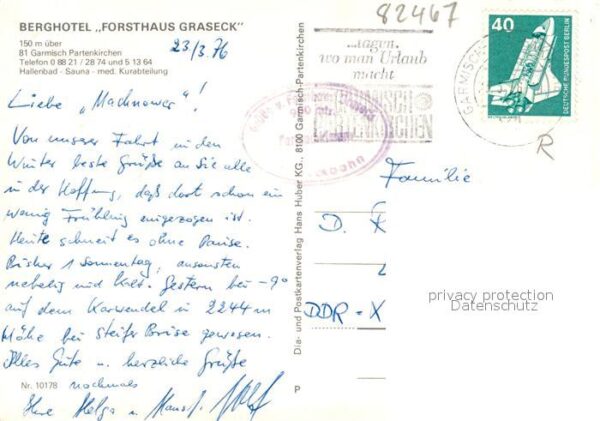 BERGHOTEL „FORSTHAUS GRASECK"
150 m über
81 Garmisch Partenkirchen
Telefon 0 88 21 / 28 74 und 5 13 64
Hallenbad - Sauna - med. Kurabteilung
23/3. 76
Liebe „Machnower"!
Von unserer Fahrt in den
Winter beste Grüße an Sie alle
in der Hoffnung, daß dort schon ein
wenig Frühling eingezogen ist.
Heute schneit es ohne Pause.
Bisher 1 Sonnentag, ansonsten
nebelig und kalt. Gestern bei -9°
auf dem Karwendel in 2244 m
Höhe bei steifer Brise gewesen.
Alles Gute u. herzliche Grüße
nochmals
Ihre Helga u. Hans
Nr. 10178
Dia- und Postkartenverlag Hans Huber KG., 8100 Garmisch-Partenkirchen
P
82467
...tagen,
wo man Urlaub
macht
GARMISCH
PARTENKIRCHEN
GARMISCH
40
DEUTSCHE BUNDESPOST BERLIN
R
Familie
D.
DDR - X
privacy protection
Datenschutz